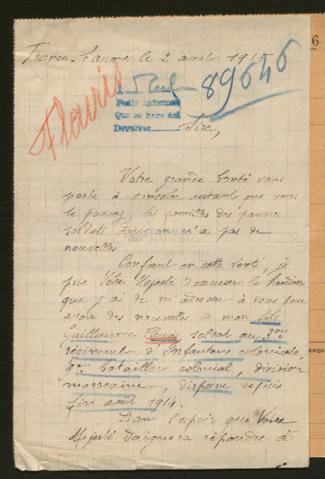 France, le 2 avril 1915
Fleuris
89646
6
Pedir informes
Que se hace así
Devolver
Sire,
Votre grande bonté vous
porte à consoler autant que vous
le pouvez les familles des pauvres
soldats dont on n'a pas de
nouvelles.
Confiant en cette bonté, je
prie Votre Majesté d'excuser la hardiesse
que j'ai de m'adresser à vous pour
avoir des nouvelles de mon fils
Guillaume soldat au 3me
régiment d'Infanterie coloniale,
bataillon colonial, division
marocaine, disparu depuis
fin août 1914.
Dans l'espoir que Votre
Majesté daignera répondre à